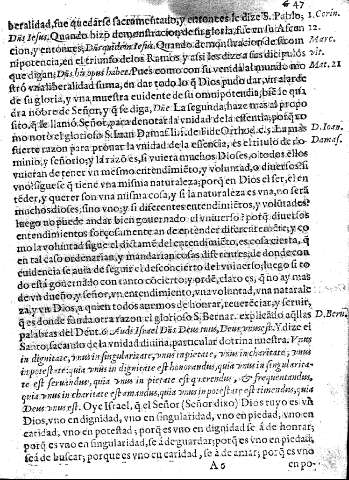 47
beralidad, fue quedarse sacramentado, y entonces le dize S. Pablo,
Dñs Iesus. Quando hizo demonstracion de su gloria, fue en su Ascen
cion, y entonces, Dñs quidem Iesus. Quando demonstracion de su om
nipotencia, en el triunfo de los Ramos y assi les dize a sus dicipulos
que digan: Dñs his opus habet. Pues como con su venida al mundo mo
stró vna liberalidad suma, en dar todo lo q̃ Dios pudo dar, vn alarde
de su gloria, y vna muestra euidente de su omnipotencia, biẽ le qua
dra nõbre de Señor, y q̃ se diga, Dñe La segunda, haze mas al propo
sito, q̃ se llamó Señor, para denotar la vnidad de la essentia, porq̃ co
mo notò el glorioso S. Iuan Damas. lib. de fide Orthod. c. La mas
fuerte razon para prouar la vnidad de la essencia, es el titulo de do
minio, y señorio, y la razó es, si vuiera muchos Dioses, o todos ellos
vuieran de tener vn mesmo entendimiẽto, y voluntad, o diuersos: si
vno? sigue se q̃ tiene vna misma naturaleza; porq̃ en Dios el ser, el en
tẽder, y querer son vna misma cosa, y si la naturaleza es vna, no serà
muchos dioses, sino vno; y si diferentes entendimiẽtos, y volũtades?
luego no puede andar bien gouernado el vniuerso? porq̃ diuersos
entendimientos forçosamente an de entender diferentemẽte, y co
mo la voluntad sigue el dictamẽ del entendimiẽto, es cosa cierta, q̃
en tal caso ordenarian, y mandarian cosas diferentes, de donde con
euidencia se auia de seguir el desconcierto del vniuerso; luego si to
do està gouernado con tanto cõcierto; y ordẽ, claro es, q̃ no ay mas
de vn dueño, y señor, vn entendimiento, vna voluntad, vna naturale
za, y vn Dios, a quien todos auemos de honrar, reuerẽciar, y seruir,
q̃ es donde funda otra razon el glorioso S. Bernar. explicãdo aq̃llas
palabras del Deut. 6 Audi Israel Dñs Deus tuus, Deus vnus est. Y dize el
Santo, sacando de la vnidad diuina, particular dotrina nuestra. Vnus
in dignitate, vnus in singularitate, vnus in pietate, vnus in charitate, vnus
in potestate: quia vnus in dignitate est honorandus, quia vnus in singularita-
te est seruandus, quia vnus in pietate est querendus, & frequentandus,
quia vnus in charitate est amandus, quia vnus in potestate est timendus, quia
Deus vnus est. Oye Israel, q̃ el Señor (Señor dixo) Dios tuyo es vn
Dios, vno en dignidad, vno en singularidad, vno en piedad, vno en
caridad, vno en potestad; porq̃ es vno en dignidad se à de honrar;
porq̃ es vno en singularidad, se à de guardar; porq̃ es vno en piedad,
se à de buscar; porque es vno en caridad, se à de amar; porq̃ es vno
en po-
1. Corin.
12.
Marc.
vlt.
Mat. 21
D. Ioan.
Damas.
D. Bern.